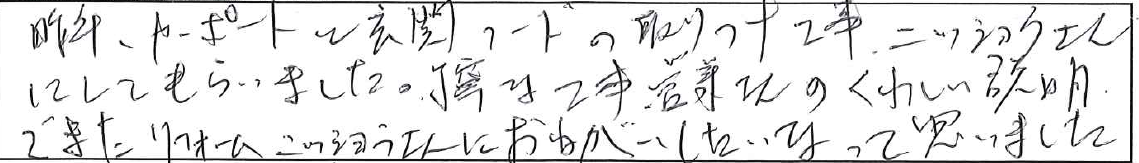 昨年、カーポートと玄関フードの取りつけ工事、ニッショウさん
にしてもらいました。丁寧な工事、営業さんのくわしい説明。
でまたリフォームニッショウさんにおねがいしたいなって思いました